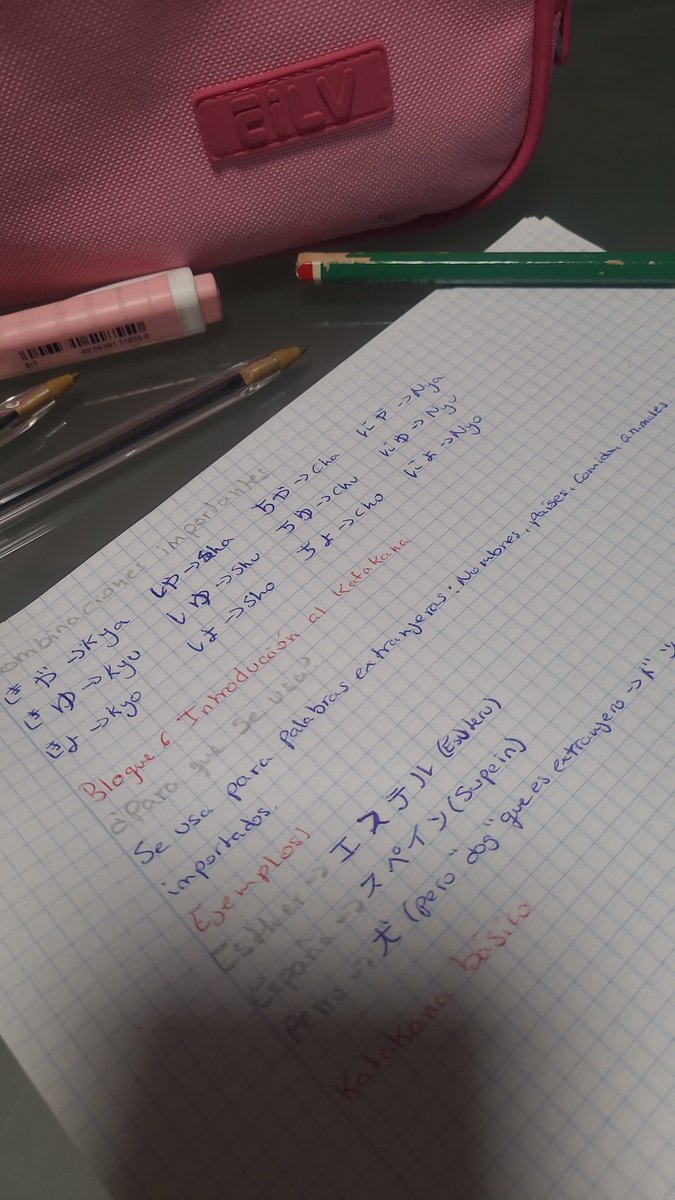 ombinaciones importantes
きゃ → Kya しゃ → Sha ちゃ → Cha にゃ → Nya
きゅ → Kyu しゅ → Shu ちゅ → Chu にゅ → Nyu
きょ → Kyo しょ → Sho ちょ → Cho にょ → Nyo
Bloque 6 Introducción al Katakana
¿Para que se usa?
Se usa para palabras extranjeras: Nombres, países, comida, animales
importados.
Ejemplos)
Esther → エステル (Esuteru)
España → スペイン (Supein)
perro → 犬 (pero "dog" que es extranjero →
Katakana básico